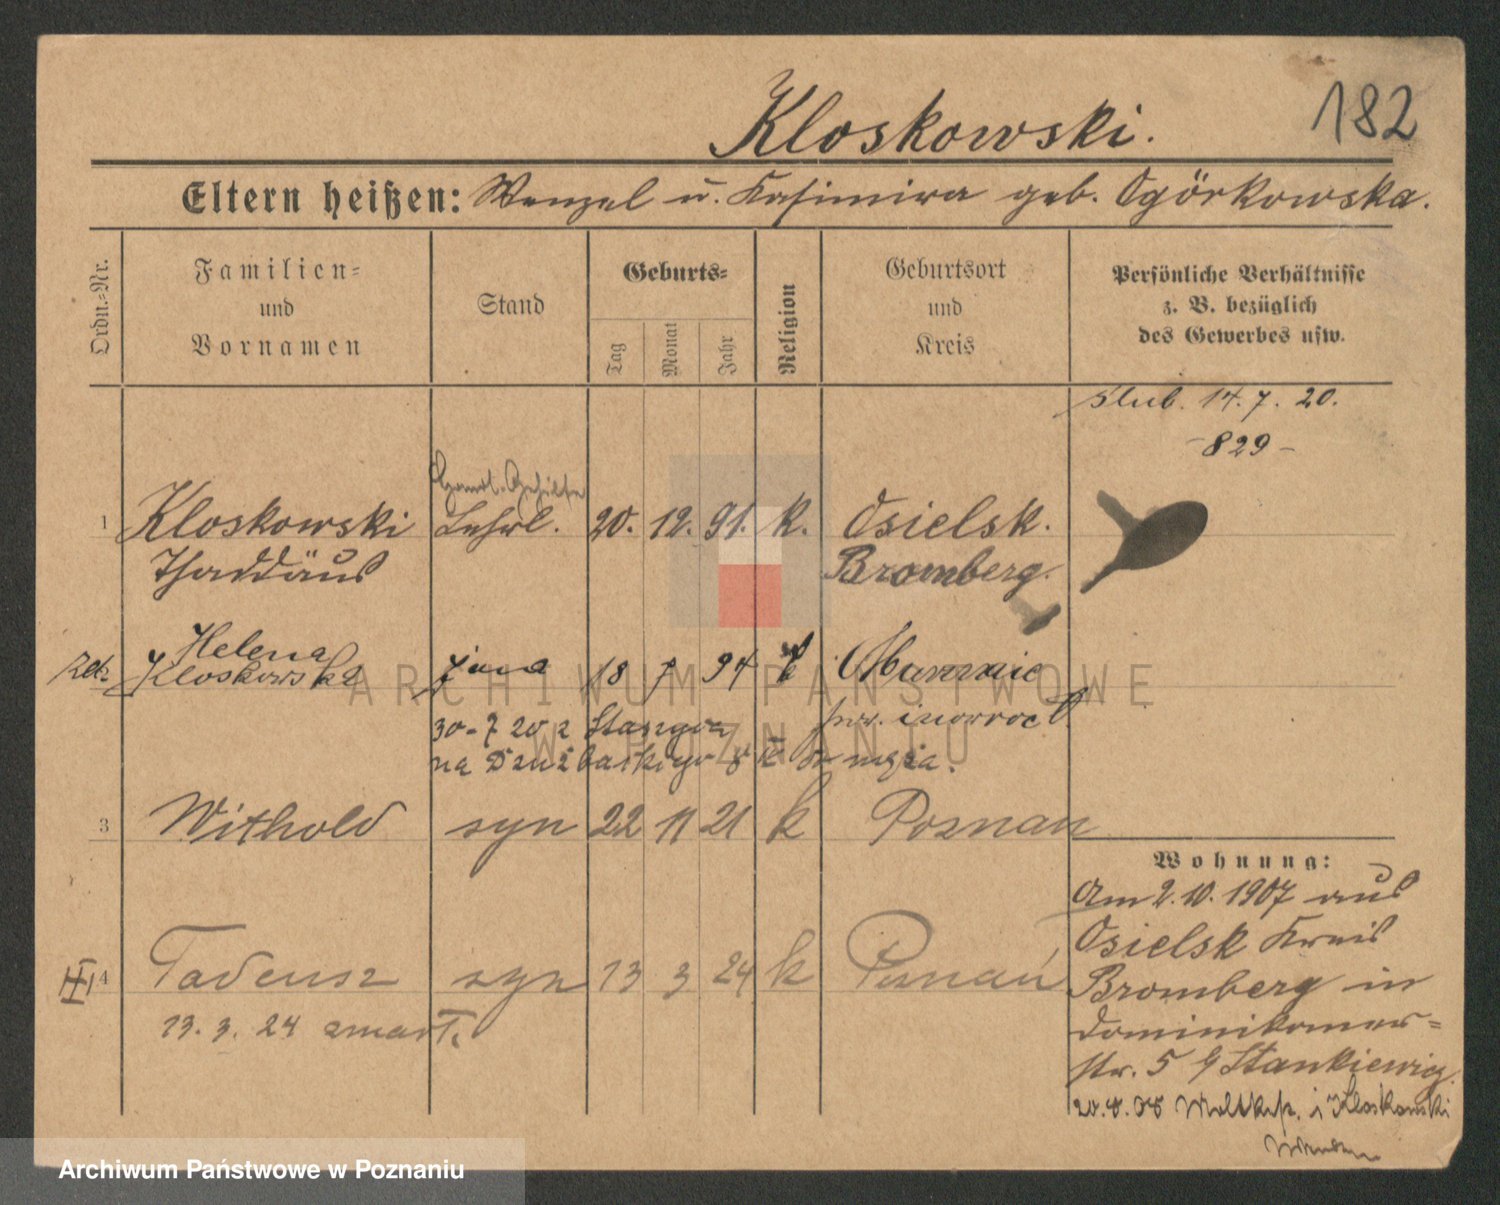 182
Kloskowski.
Eltern heißen: Wenzel u. Kasimira geb. Ogórkowska.
Ordn.=Nr.
Familien= und Vornamen
Stand
Geburts=
Tag
Monat
Jahr
Religion
Geburtsort und Kreis
Persönliche Verhältnisse
z. B. bezüglich
des Gewerbes usw.
ślub. 14. 7. 20.
-829-
1 Kloskowski Lehrl. 20. 12. 91. k. Osielsk.
Thaddäus Bromberg.
Helena
Kloskowska żona 18 7 94 k
30-7 20 z
na
3 Withold syn 22 11 21 k Poznań
4 Tadeusz syn 13 3 24 k Poznań
13. 3. 24 zmarł.
Wohnung:
Am 2. 10. 1907 aus
Osielsk Kreis
Bromberg in
Dominikaner=
str. 5 b/ Stankiewicz.
Kloskowski
ARCHIWUM PAŃSTWOWE
W POZNANIU
Archiwum Państwowe w Poznaniu